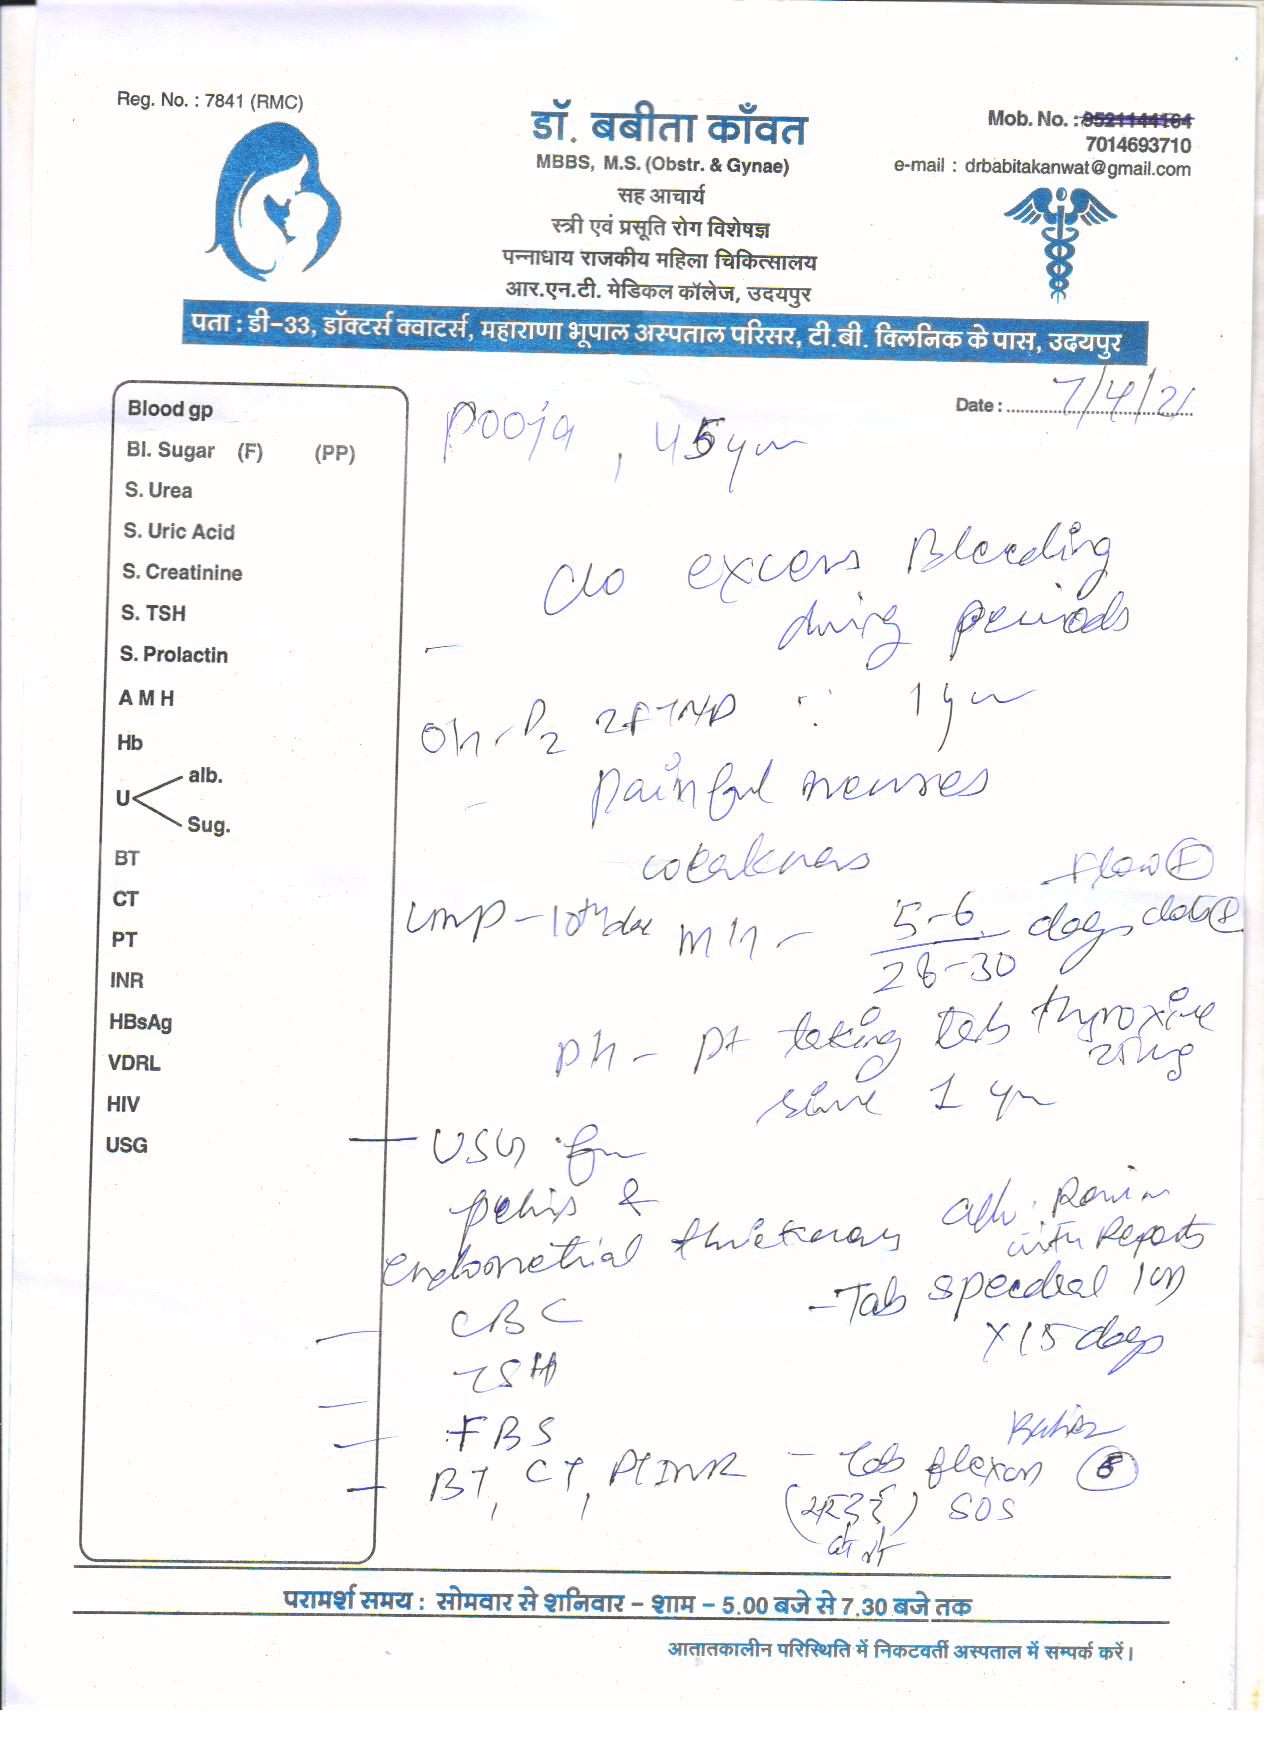 Reg. No. : 7841 (RMC)
डॉ. बबीता काँवत
MBBS, M.S. (Obstr. & Gynae)
सह आचार्य
स्त्री एवं प्रसूति रोग विशेषज्ञ
पन्नाधाय राजकीय महिला चिकित्सालय
आर.एन.टी. मेडिकल कॉलेज, उदयपुर
Mob. No. : 9521144164
7014693710
e-mail : drbabitakanwat@gmail.com
पता : डी-33, डॉक्टर्स क्वाटर्स, महाराणा भूपाल अस्पताल परिसर, टी.बी. क्लिनिक के पास, उदयपुर
Date : 7/4/21
Blood gp
Bl. Sugar (F) (PP)
S. Urea
S. Uric Acid
S. Creatinine
S. TSH
S. Prolactin
A M H
Hb
U alb.
Sug.
BT
CT
PT
INR
HBsAg
VDRL
HIV
USG
Pooja, 45 yrs
c/o excess Bleeding
during periods
O/h - P2 2FTND ∵ 1 yr
Painful menses
weakness
Flow
LMP - 10th M/h - 5-6 days
28-30
P/h - Pt taking tab thyroxine
25 mg
since 1 yr
USG for
pelvis &
endometrial thickness
CBC
TSH
FBS
BT, CT, PT INR
adv. Review
with Reports
- Tab
x 15 days
- Tab flexon
SOS
परामर्श समय : सोमवार से शनिवार - शाम - 5.00 बजे से 7.30 बजे तक
आतातकालीन परिस्थिति में निकटवर्ती अस्पताल में सम्पर्क करें।